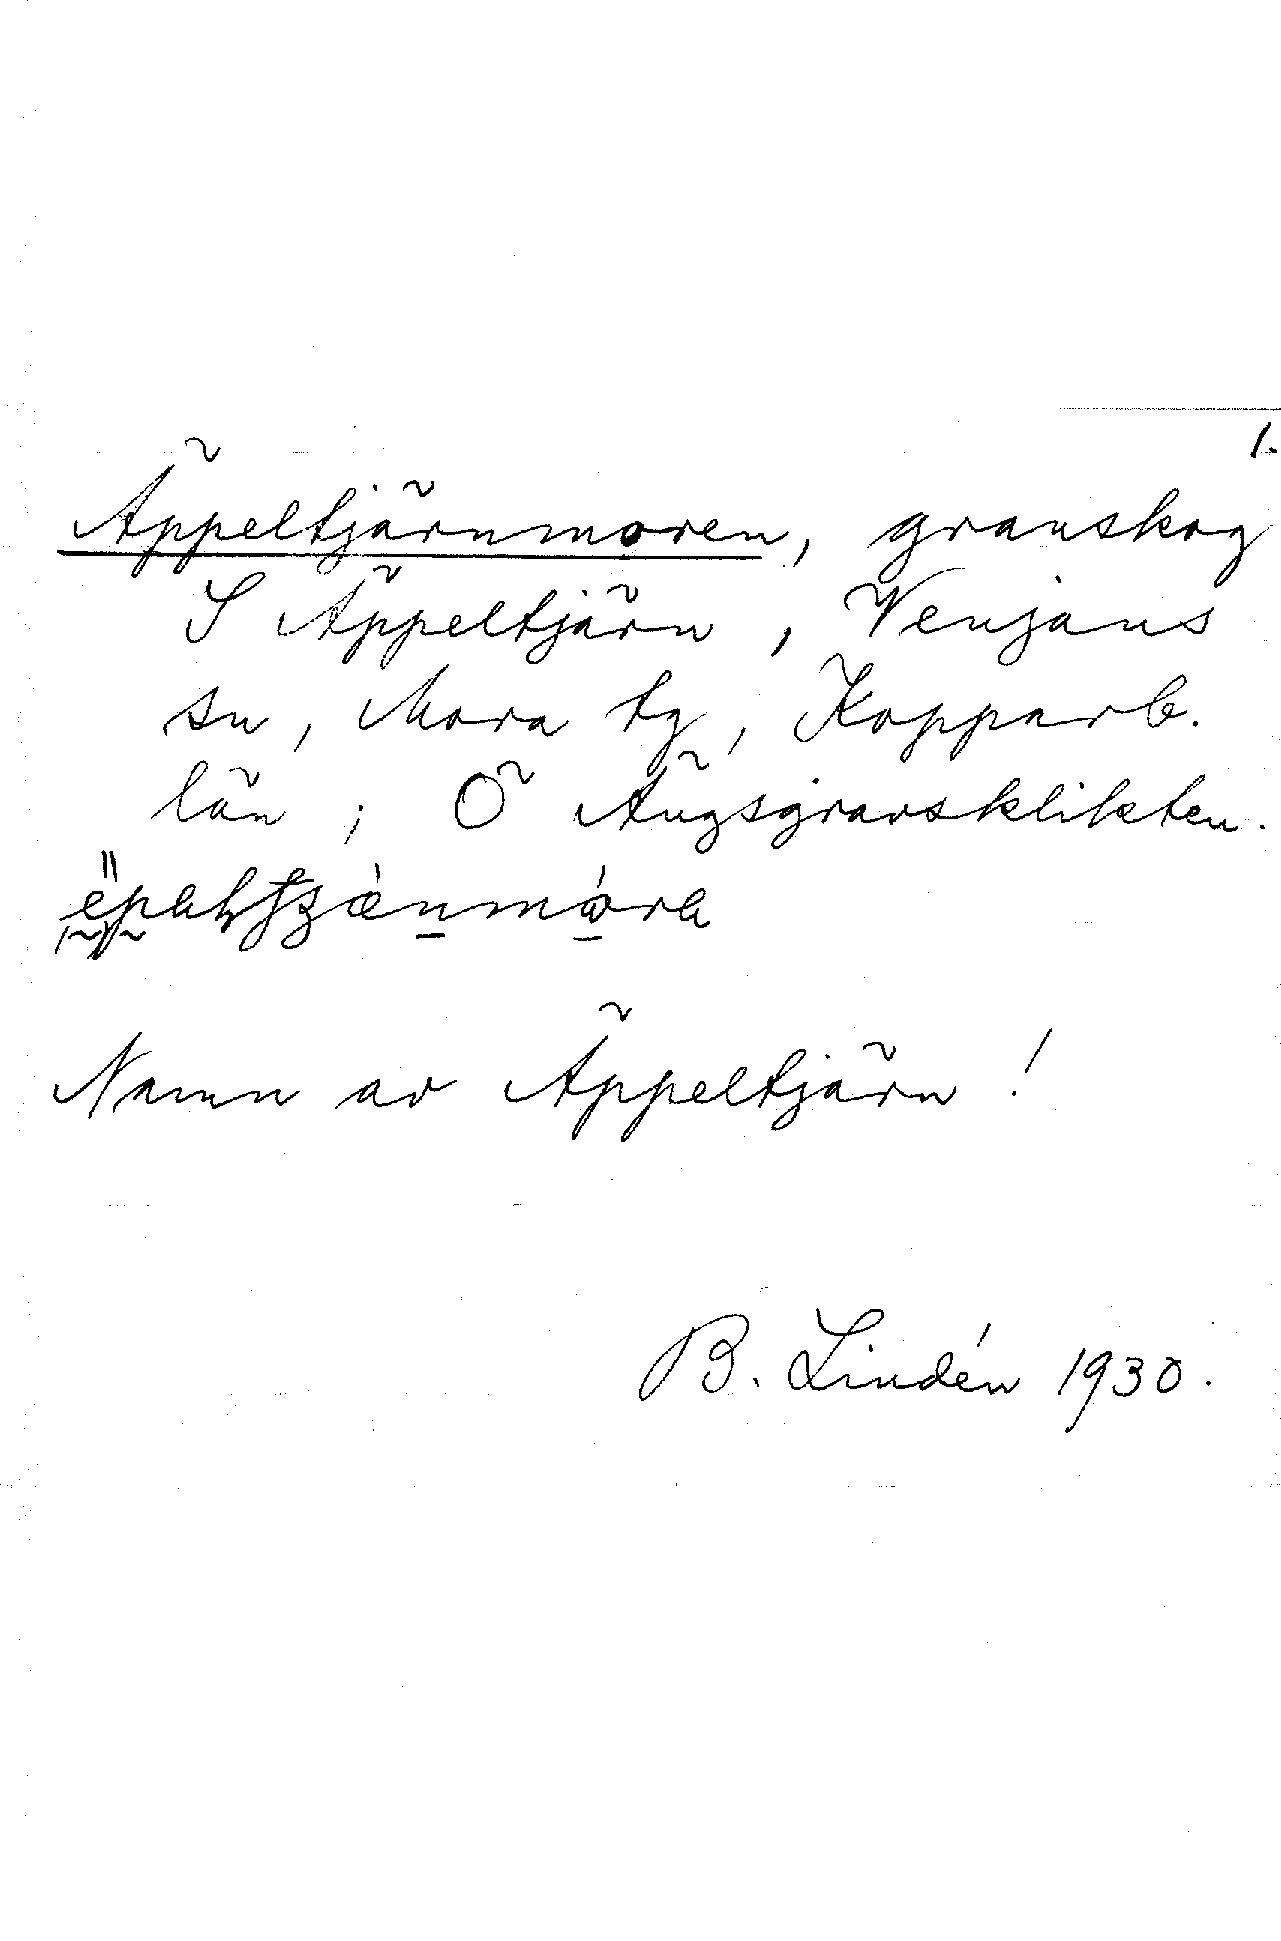 1.
Äppeltjärnmoren, granskog
S Äppeltjärn, Venjans
sn, Mora tg, Kopparb.
län; Ö Ängsgravsklikten.
Namn av Äppeltjärn!
B. Lindén 1930.